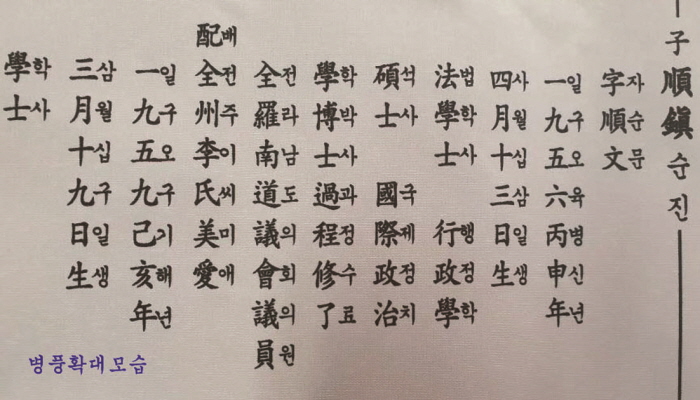 子 順鎭 순진
字자順순文문
一일九구五오六육丙병申신年년
四사月월十십三삼日일生생
法법學학士사 行행政정學학
碩석士사 國국際제政정治치
學학博박士사過과程정修수了료
全전羅라南남道도議의會회議의員원
配배全전州주李이氏씨美미愛애
一일九구五오九구己기亥해年년
三삼月월十십九구日일生생
學학士사
병풍확대모습